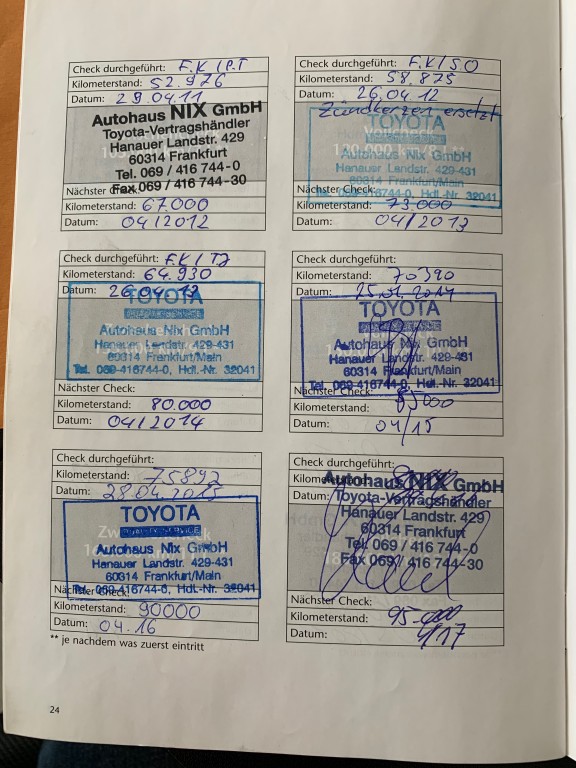 Check durchgeführt: F.K / P.T
Kilometerstand: 52.976
Datum: 29.04.11
Autohaus NIX GmbH
Toyota-Vertragshändler
Hanauer Landstr. 429
60314 Frankfurt
Tel. 069 / 416 744-0
Fax 069 / 416 744-30
Nächster Check:
Kilometerstand: 67.000
Datum: 04/2012
Check durchgeführt: F.K / SO
Kilometerstand: 58.875
Datum: 26.04.12
Zündkerzen ersetzt
TOYOTA
Autohaus Nix GmbH
Hanauer Landstr. 429-431
60314 Frankfurt/Main
Tel. 069-416744-0, Hdl.-Nr. 32041
Nächster Check:
Kilometerstand: 73.000
Datum: 04/2013
Check durchgeführt: F.K / TJ
Kilometerstand: 64.930
Datum: 26.04.13
TOYOTA
QUALITY SERVICE
Autohaus Nix GmbH
Hanauer Landstr. 429-431
60314 Frankfurt/Main
Tel. 069-416744-0, Hdl.-Nr. 32041
Nächster Check:
Kilometerstand: 80.000
Datum: 04/2014
Check durchgeführt:
Kilometerstand: 70390
Datum: 25.04.2014
TOYOTA
QUALITY SERVICE
Autohaus Nix GmbH
Hanauer Landstr. 429-431
60314 Frankfurt/Main
Tel. 069-416744-0, Hdl.-Nr. 32041
Nächster Check:
Kilometerstand: 85000
Datum: 04/15
Check durchgeführt:
Kilometerstand: 75892
Datum: 28.04.2015
TOYOTA
QUALITY SERVICE
Autohaus Nix GmbH
Hanauer Landstr. 429-431
60314 Frankfurt/Main
Tel. 069-416744-0, Hdl.-Nr. 32041
Nächster Check:
Kilometerstand: 90000
Datum: 04.16
Check durchgeführt:
Datum:
Autohaus NIX GmbH
Toyota-Vertragshändler
Hanauer Landstr. 429
60314 Frankfurt
Tel. 069 / 416 744-0
Fax 069 / 416 744-30
Nächster Check:
Kilometerstand: 95.000
Datum: 4/17
** je nachdem was zuerst eintritt
24